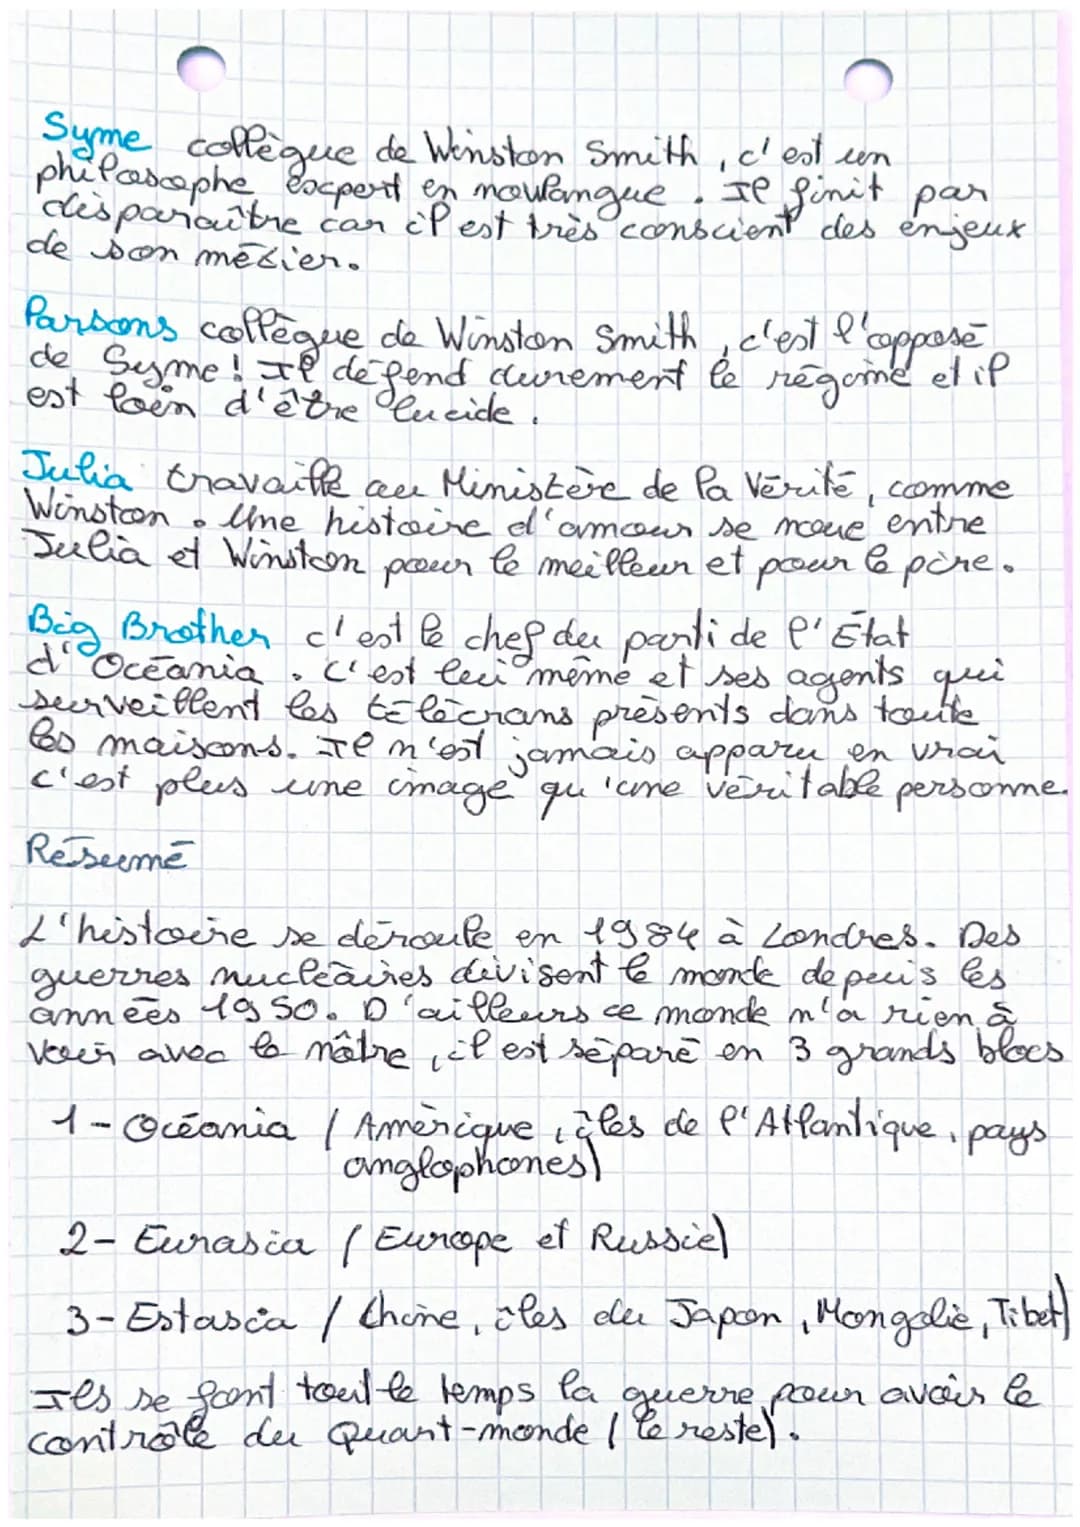 Syme collègue de Winston Smith, c'est un
philosophe expert en novlangue. Il finit par
disparaître car il est très conscient des enjeux
de son métier.
Parsons collègue de Winston Smith, c'est l'opposé
de Syme! Il défend durement le régime et il
est loin d'être lucide.
Julia travaille au Ministère de la Vérité, comme
Winston. Une histoire d'amour se noue entre
Julia et Winston pour le meilleur et pour le pire.
Big Brother c'est le chef du parti de l'État
d'Océania. C'est lui même et ses agents qui
surveillent les télécrans présents dans toute
les maisons. Il n'est jamais apparu en vrai
c'est plus une image qu'une véritable personne.
Résumé
L'histoire se déroule en 1984 à Londres. Des
guerres nucléaires divisent le monde depuis les
années 1950. D'ailleurs ce monde n'a rien à
voir avec le nôtre, il est séparé en 3 grands blocs
1- Océania (Amérique, îles de l'Atlantique, pays
anglophones)
2- Eurasia (Europe et Russie)
3- Estasia (Chine, îles du Japon, Mongolie, Tibet)
Ils se font tout le temps la guerre pour avoir le
contrôle du Quart-monde (le reste).